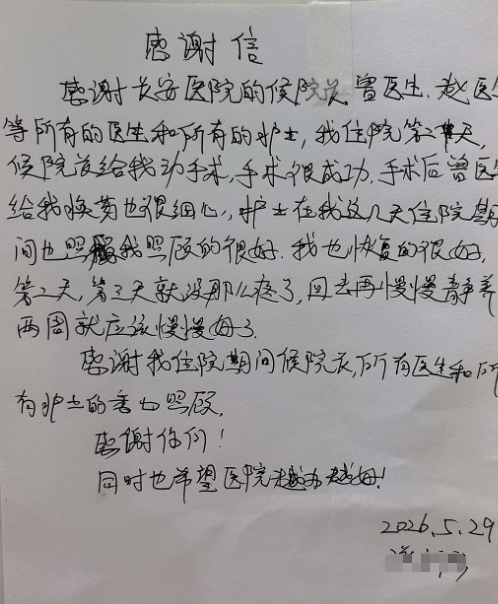 感谢信
感谢长安医院的候院长、曾医生、赵医生
等所有的医生和所有的护士，我住院第二天，
候院长给我动手术，手术很成功，手术后曾医生
给我换药也很细心，护士在我这几天住院期
间也照顾我照顾的很好，我也恢复的很好，
第二天，第三天就没那么疼了，回去再慢慢静养
两周就应该慢慢好了。
感谢我住院期间候院长，所有医生和所
有护士的照顾。
感谢你们！
同时也希望医院越办越好！
2026.5.29